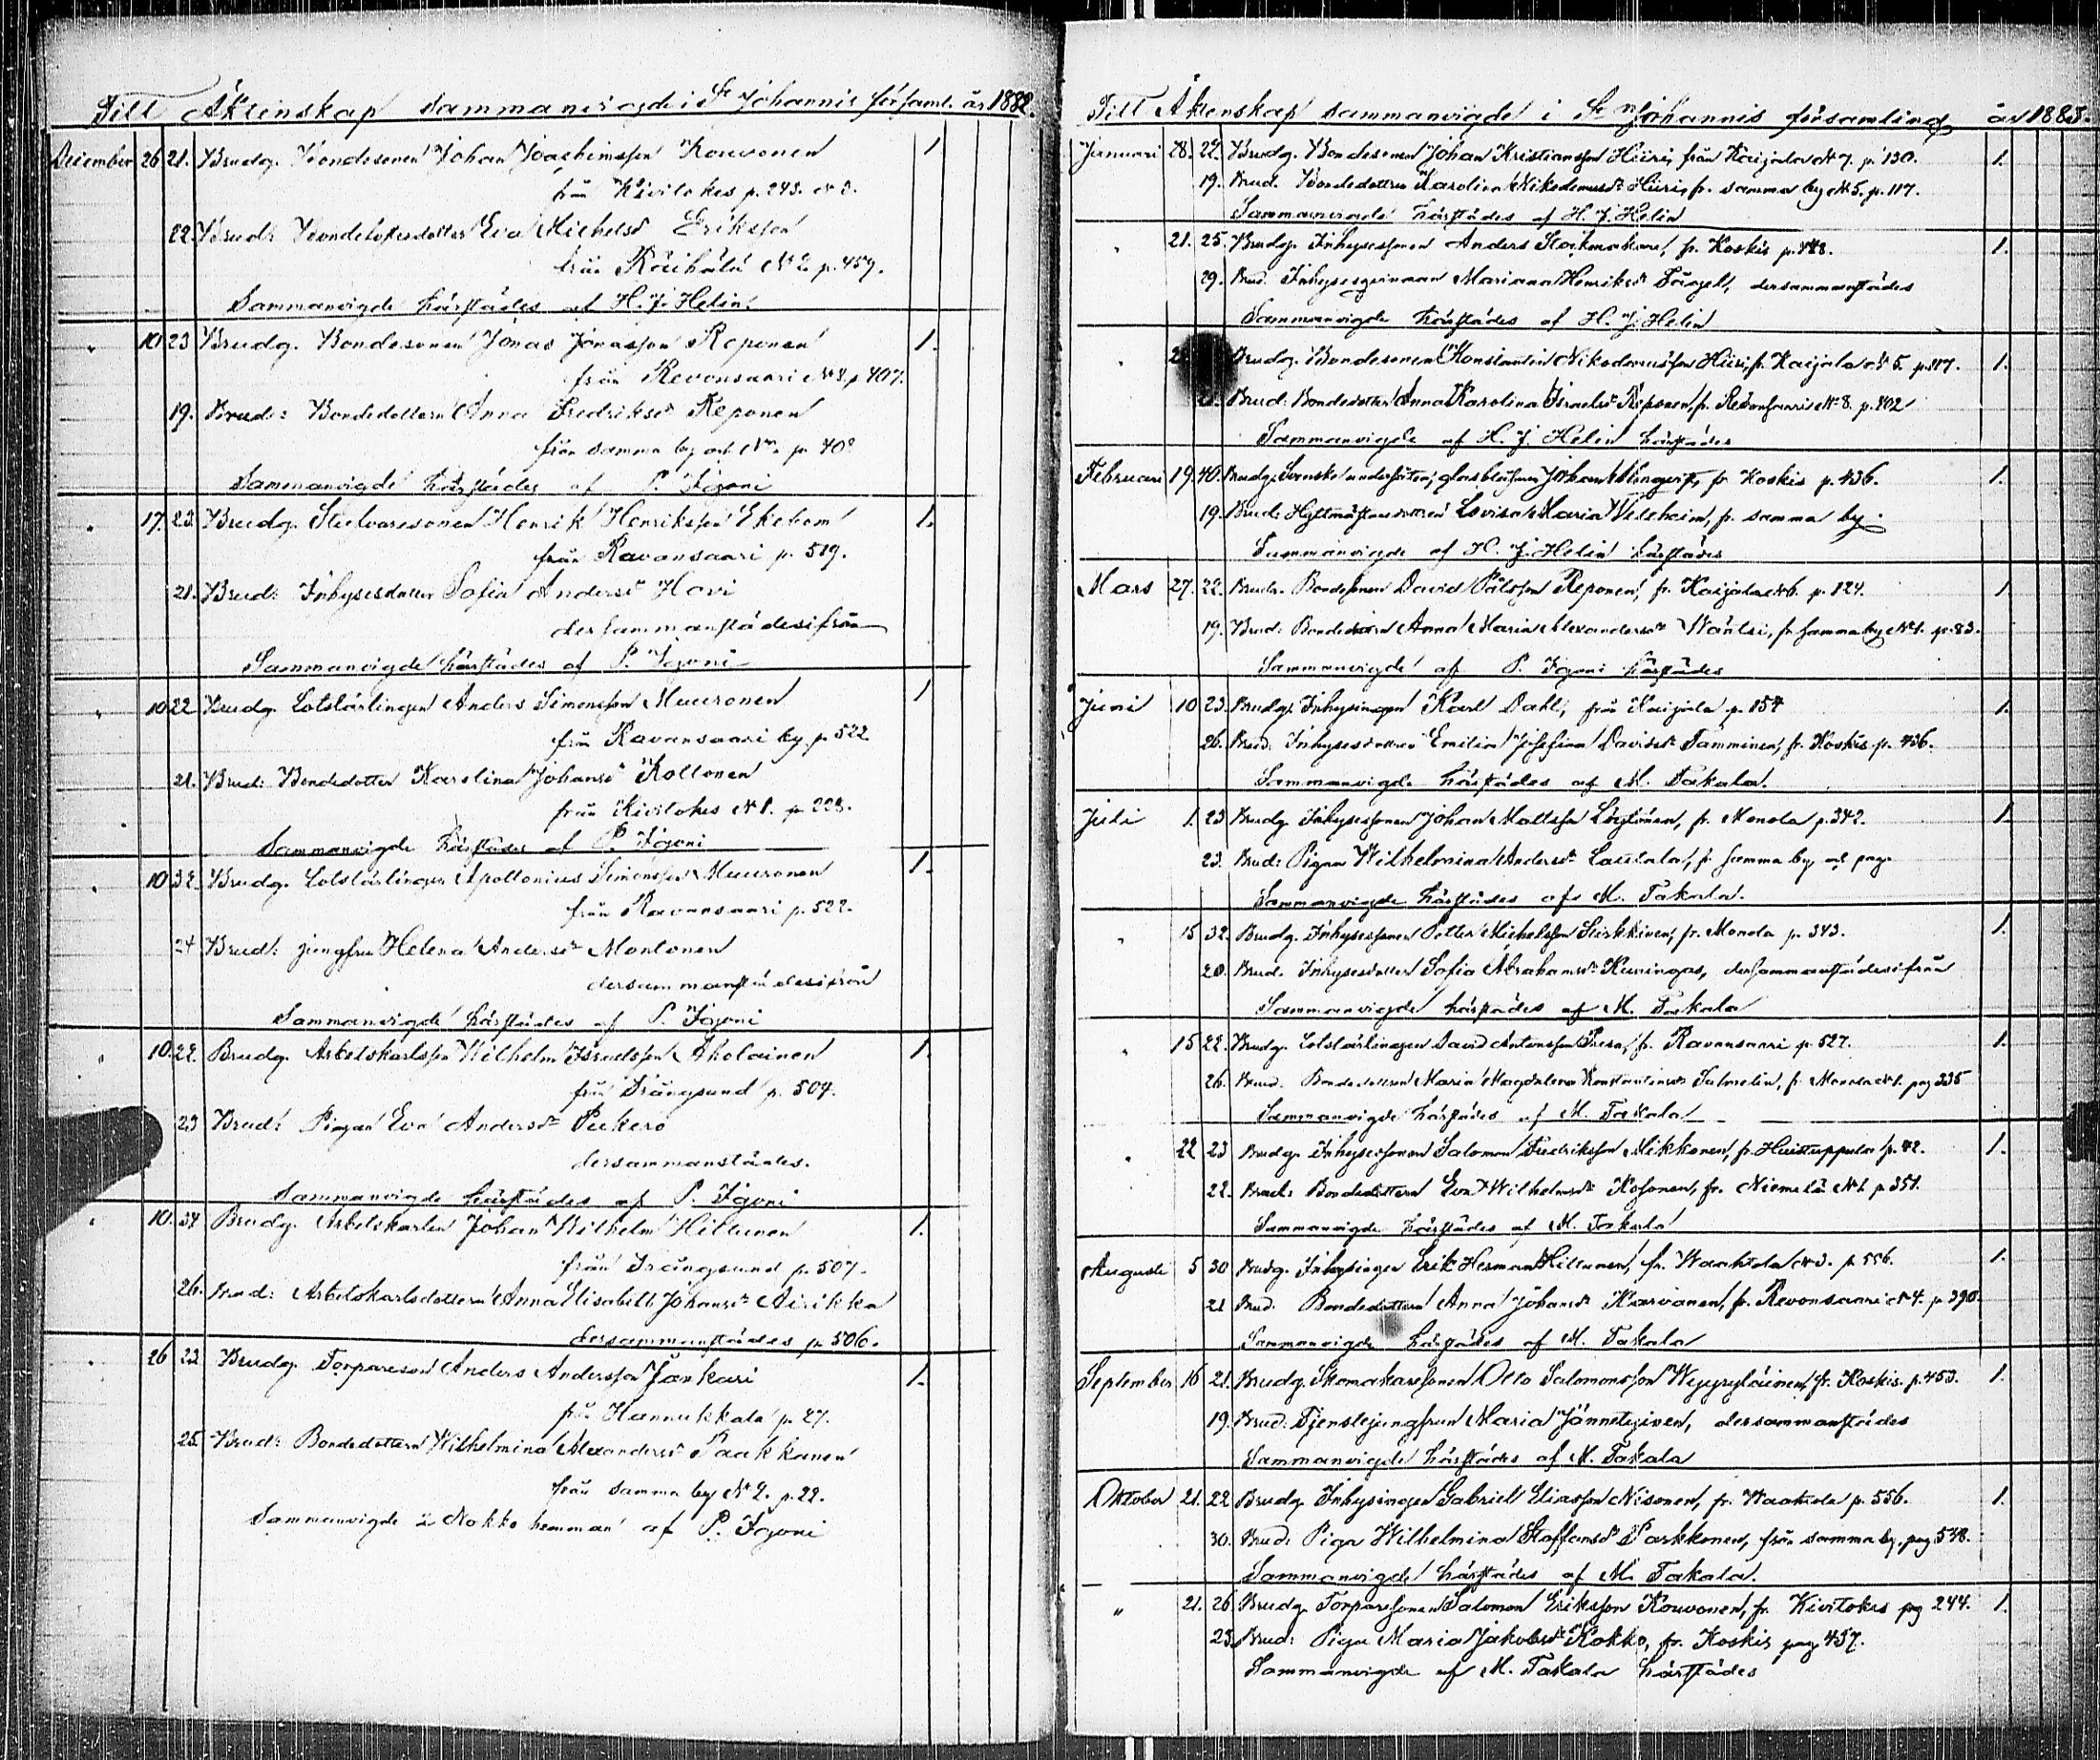 Till Äktenskap Sammanvigde i St Johannis församl. år 1882.
December 26 21. Brudg. Bondesonen Johan Joachimsson Kouvonen 1
från Kivilokes p. 243. N 3.
22. Brud: Eva Michelsd: Eriksson
från Räihälä N 2 p. 459.
Sammanvigde härstädes af H. J. Helin.
" 10 23 Brudg. Bondesonen Jonas Jonasson Reponen 1.
från Revonsaari N 8 p. 407.
19. Brud: Bondedottern Anna Fredriksd: Reponen
från samma by och N: p. 40
Sammanvigde härstädes af P. Toponi
" 17. 23. Brudg. Henrik Henriksson Ekebom 1.
från Ravansaari p. 519.
21. Brud: Inhysesdotter Sofia Andersd: Hovi
dersammanstädesifrån
Sammanvigde härstädes af P. Toponi
" 10 22 Brudg. Lotslärlingen Anders Simonsson Muuronen 1
från Ravansaari by p. 522
21. Brud: Bondedotter Karolina Johansd: Koltonen
från Kivilokes N 1. p. 228.
Sammanvigde härstädes af P. Toponi
" 10 32. Brudg. Lotslärlingen Apollonius Simonsson Muuronen 1.
från Ravansaari p. 522.
24 Brud: jungfru Helena Andersd: Montonen
dersammanstädesifrån
Sammanvigde härstädes af P. Toponi
" 10. 22. Brudg. Arbetskarlsson Wilhelm Israelsson Aholainen 1.
från Trångsund p. 504.
23 Brud: Pigan Eva Andersd: Pukero
dersammanstädes.
Sammanvigde härstädes af P. Toponi
" 10. 34 Brudg. Arbetskarlen Johan Wilhelm Hiltunen 1.
från Trångsund p. 507.
26. Brud: Arbetskarlsdottern Anna Elisabeth Johansd: Airikka
dersammanstädes p. 506.
" 26 23 Brudg. Torpareson Anders Andersson Jankari 1.
från Hannukkala p. 27.
25. Brud: Bondedottern Wilhelmina Alexandersd: Paakkanen
från samma by N 2. p. 22.
Sammanvigde å Nokko hemman af P. Toponi
Till Äktenskap sammanvigde i St Johannis församling år 1883.
Januari 28. 22. Brudg. Bondesonen Johan Kristiansson Hiiri, från Kaijala N 7. p. 130. 1.
19. Brud. Bondedottren Karolina Nikodemusd: Hiiri, fr. samma by N 5. p. 117.
Sammanvigde härstädes af H. J. Helin
" 21. 25. Brudg. Inhysessonen Anders fr. Koskis p. 448. 1.
29. Brud. Mariana Henriksd: dersammanstädes
Sammanvigde härstädes af H. J. Helin
" Brudg. Bondesonen Konstantin Nikodemusson Hiiri, fr. Kaijala N 5. p. 117. 1.
Brud: Bondedotter Anna Karolina Israelsd: Reponen, fr. Revonsaari N 8. p. 402
Sammanvigde af H. J. Helin härstädes
Februari 19. 40. Brudg. Svenske undersåten, glasblåsaren Johan fr. Koskis p. 436. 1.
19. Brud: Hyttmästaredottren Lovisa Maria fr. samma by.
Sammanvigde af H. J. Helin härstädes
Mars 27. 22. Brudg. Bondesonen David Pålsson Reponen, fr. Kaijala N 6. p. 124. 1
19. Brud: Anna Maria Alexandersd: Wäntsi, fr. samma by N 1. p. 83.
Sammanvigde af P. Toponi härstädes
Juni 10 23. Brudg. Inhysingen Karl Dahl, från Kaijala p. 154 1.
26. Brud: Inhysesdottren Emilia Josefina Davidsd: Tamminen, fr. Koskis p. 436.
Sammanvigde härstädes af M. Takala.
Juli 1. 23 Brudg. Inhysessonen Johan Mattsson fr. Monola p. 342. 1.
23. Brud: Pigan Wilhelmina Andersd: Lautala, fr. samma by och pag.
Sammanvigde härstädes af M. Takala.
" 15 32. Brudg. Inhysessonen Petter Michelsson fr. Monola p. 343. 1.
20. Brud. Inhysesdotter Sofia Abrahamsd: Kuningas, dersammanstädesifrån
Sammanvigde härstädes af M. Takala
" 15 22. Brudg. Lotslärlingen David Antonsson fr. Ravansaari p. 527. 1.
26. Brud. Bondedottren Maria Magdalena Konstantinsd: Salmelin, fr. Monola N 1. pag 335
Sammanvigde härstädes af M. Takala
" 22 23 Brudg. Inhysessonen Salomon Fredriksson Mikkonen, fr. p. 42. 1.
22. Brud: Bondedottern Eva Wilhelmsd: Kosonen, fr. Niemelä N 1. p. 351.
Sammanvigde härstädes af M. Takala
Augusti 5 30 Brudg. Inhysingen Erik Herman Hiltunen, fr. Waahtola N 3. p. 556. 1.
21 Brud. Bondedottern Anna Johansd: Karvanen, fr. Revonsaari N 4. p. 390.
Sammanvigde härstädes af M. Takala
September 16 21. Brudg. Skomakaresonen Otto Salomonsson fr. Koskis. p. 453. 1.
19. Brud: Tjenstejungfrun Maria dersammanstädes
Sammanvigde härstädes af M. Takala
Oktober 21. 22 Brudg. Inhysingen Gabriel Eliasson Nisonen, fr. Waahtola p. 556. 1.
30. Brud: Piga Wilhelmina Staffansd: Parkkonen, från samma by. pag 548.
Sammanvigde härstädes af M. Takala.
" 21. 26 Brudg. Torparesonen Salomon Eriksson Kouvonen, fr. Kivilokes pag 244. 1.
23. Brud: Piga Maria Jakobsd: Kokko, fr. Koskis pag 457.
Sammanvigde af M. Takala härstädes